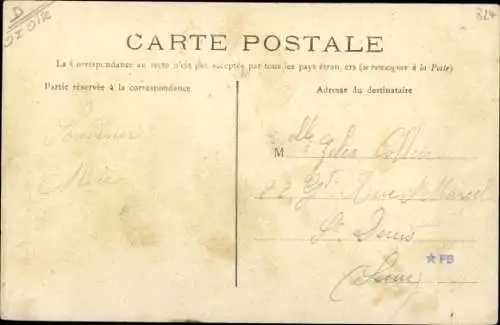 D
824
CARTE POSTALE
La Correspondance au recto n'est pas acceptée par tous les pays étrangers (se renseigner à la Poste)
Partie réservée à la correspondance
Adresse du destinataire
Souvenir
Alice
M elle
Rue Marcel
St Denis
★ FB
(Seine)